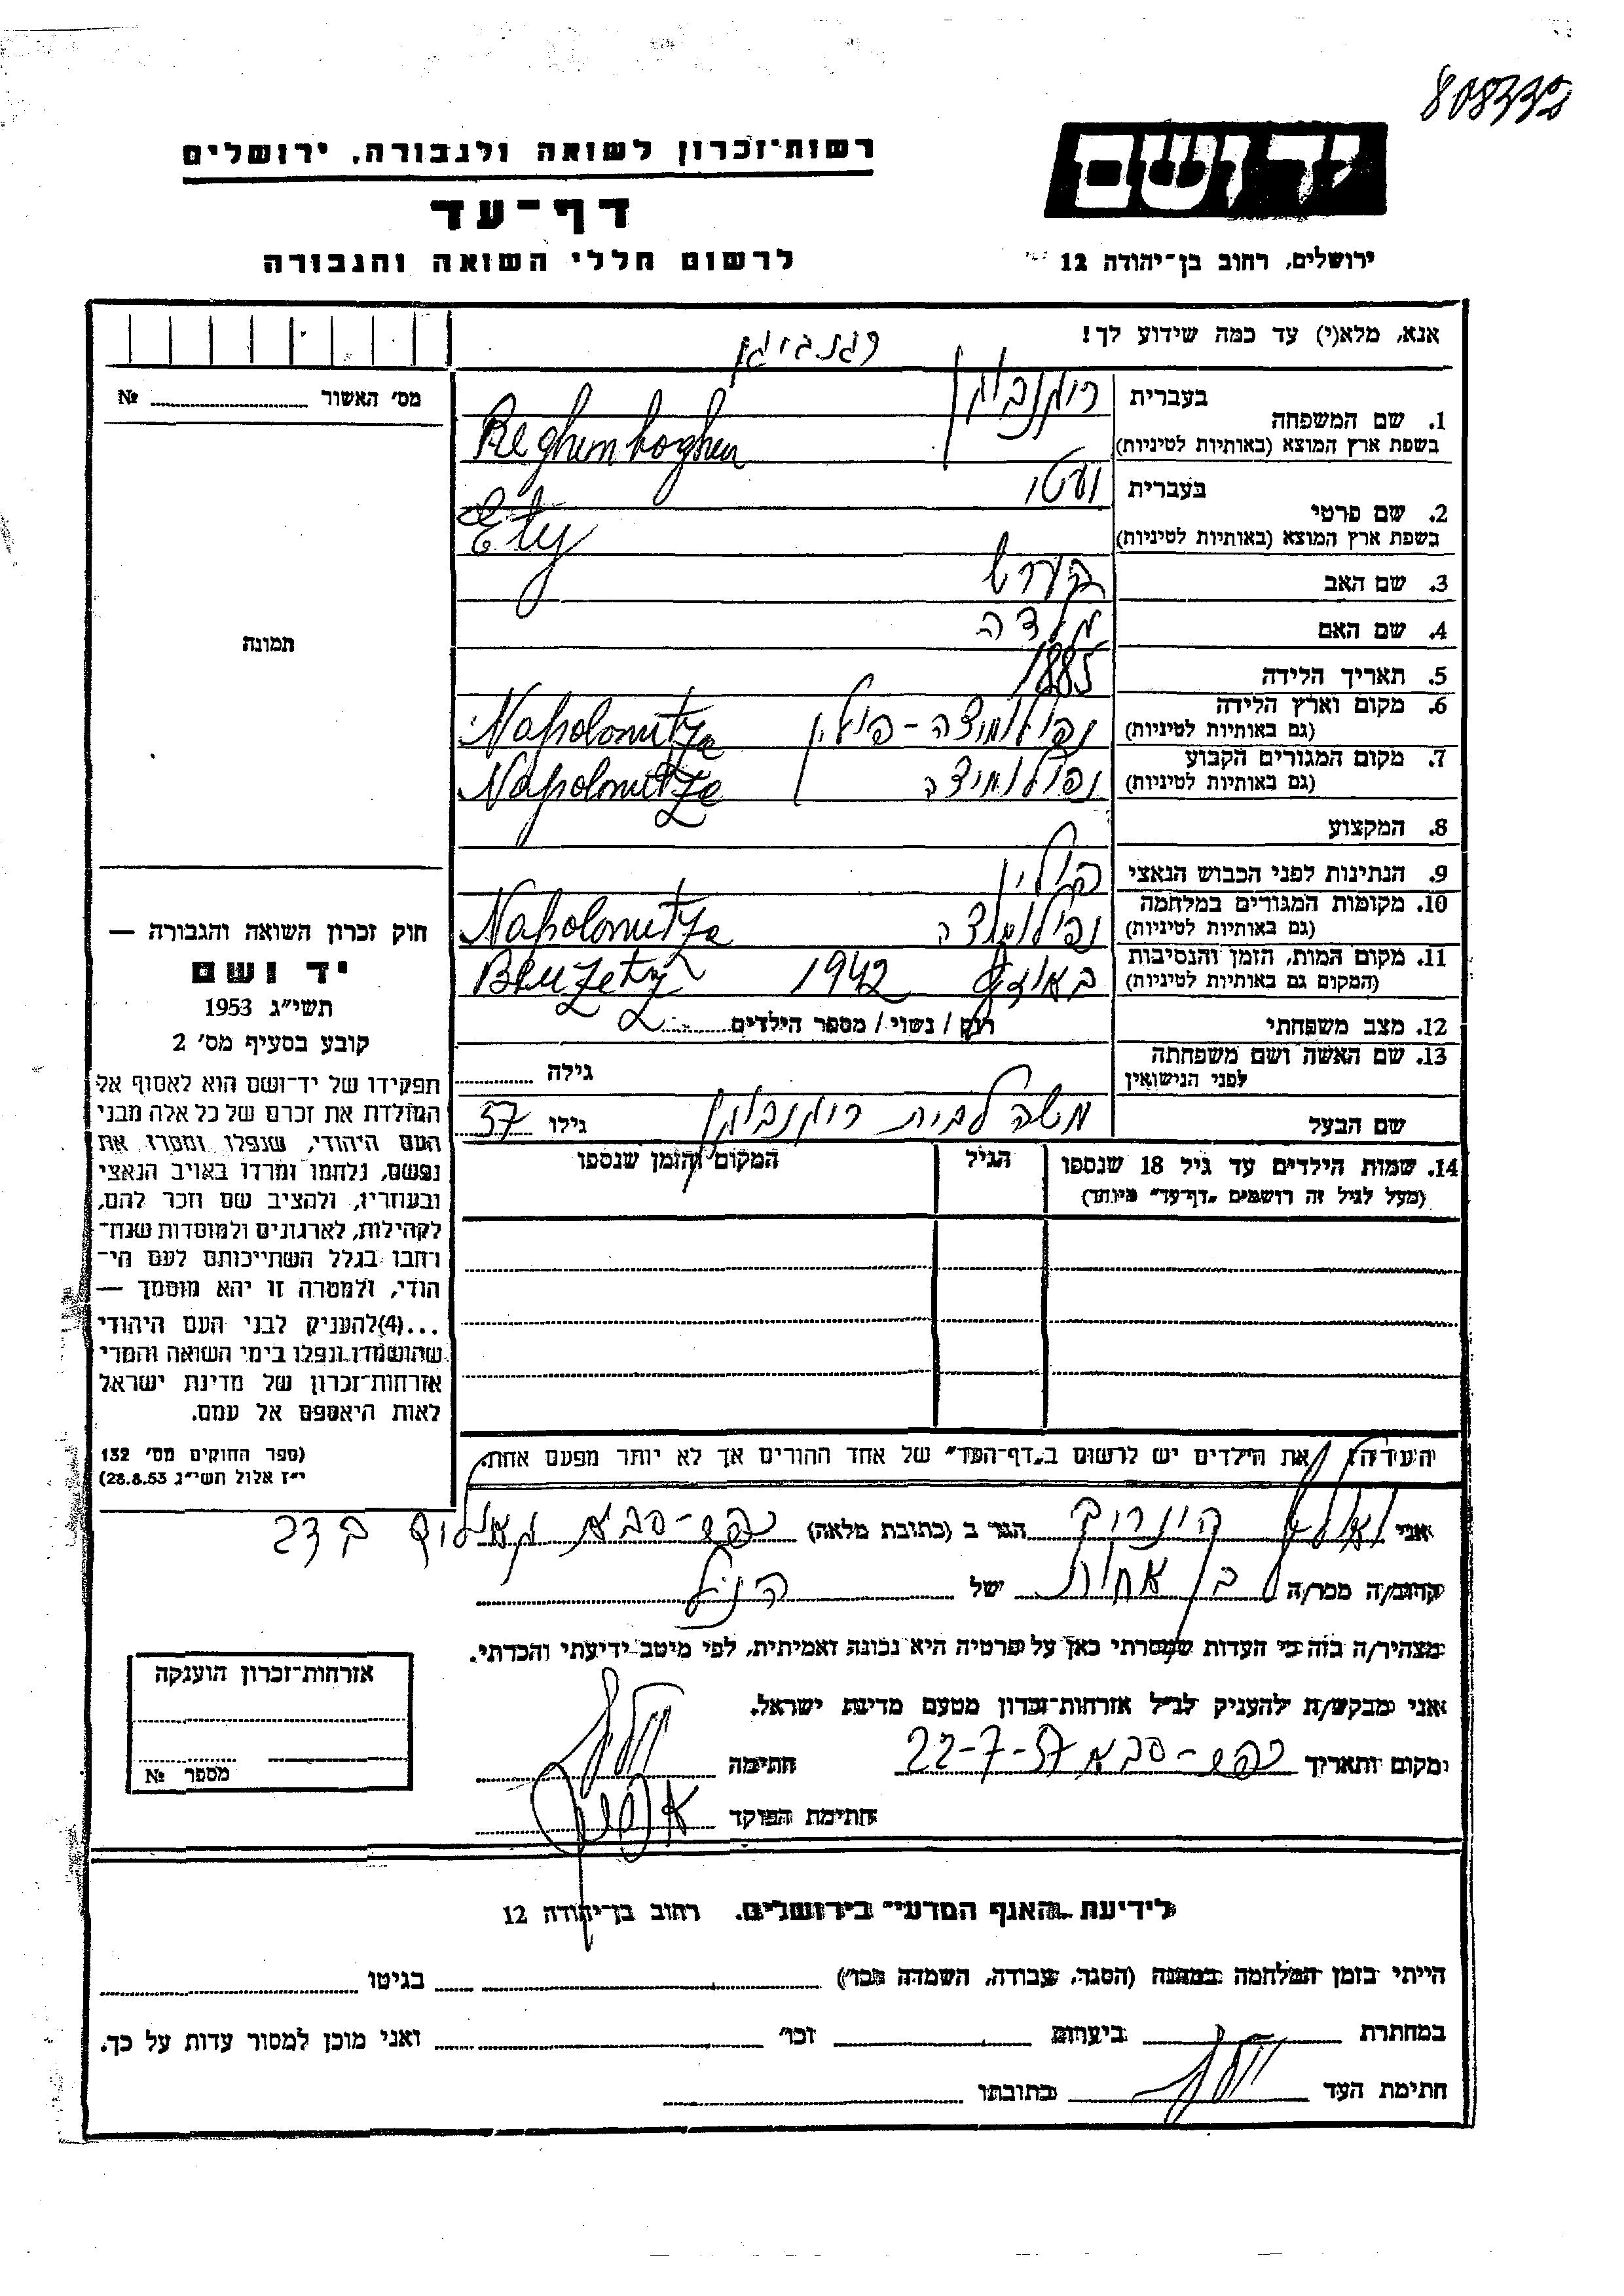 808332
יד ושם
רשות־זכרון לשואה ולגבורה, ירושלים
דף־עד
לרשום חללי השואה והגבורה
ירושלים, רחוב בן־יהודה 12
אנא, מלא(י) עד כמה שידוע לך!
רגנבוגן
מס׳ האשור № 
1. שם המשפחה
בעברית רוגנבוגן
בשפת ארץ המוצא (באותיות לטיניות) Reghenboghen
2. שם פרטי
בעברית
בשפת ארץ המוצא (באותיות לטיניות) Ety
3. שם האב
4. שם האם
5. תאריך הלידה 1885
6. מקום וארץ הלידה נפולומיצה - פולין
(גם באותיות לטיניות) Napolonutza
7. מקום המגורים הקבוע נפולומיצה
(גם באותיות לטיניות) Napolonutza
8. המקצוע
9. הנתינות לפני הכבוש הנאצי פולין
10. מקומות המגורים במלחמה
(גם באותיות לטיניות) Napolonutza
11. מקום המות, הזמן והנסיבות 1942
(המקום גם באותיות לטיניות)
12. מצב משפחתי רוק / נשוי / מספר הילדים 2
13. שם האשה ושם משפחתה
לפני הנישואין
גילה
שם הבעל משה לבית רוגנבוגן גילו 57
תמונה
חוק זכרון השואה והגבורה —
יד ושם
תשי״ג 1953
קובע בסעיף מס׳ 2
תפקידו של יד־ושם הוא לאסוף אל
המולדת את זכרם של כל אלה מבני
העם היהודי, שנפלו ומסרו את
נפשם, נלחמו ומרדו באויב הנאצי
ובעוזריו, ולהציב שם וזכר להם,
לקהילות, לארגונים ולמוסדות שנח־
רבו בגלל השתייכותם לעם הי־
הודי, ולמטרה זו יהא מוסמך —
...(4)להעניק לבני העם היהודי
שהושמדו ונפלו בימי השואה והמרי
אזרחות־זכרון של מדינת ישראל
לאות היאספם אל עמם.
(ספר החוקים מס׳ 132
י״ז אלול תשי״ג 28.8.53)
14. שמות הילדים עד גיל 18 שנספו
(מעל לגיל זה רושמים „דף־עד״ מיוחד)
הגיל
המקום והזמן שנספו
העירה: את הילדים יש לרשום ב„דף־העד״ של אחד ההורים אך לא יותר מפעם אחת.
אני היינריך הגר ב (כתובת מלאה) כפר-סבא
קרוב/ה מכר/ה בן אחות של הנ״ל
מצהיר/ה בזה כי העדות שמסרתי כאן על פרטיה היא נכונה ואמיתית, לפי מיטב ידיעתי והכרתי.
אני מבקש/ת להעניק לנ״ל אזרחות־זכרון מטעם מדינת ישראל.
מקום ותאריך כפר-סבא 22-7-57 חתימה
חתימת הפוקד
אזרחות־זכרון הוענקה
מספר №
לידיעת האגף המדעי בירושלים, רחוב בן־יהודה 12
הייתי בזמן המלחמה במחנה (הסגר, עבודה, השמדה וכו׳) בגיטו
במחתרת ביערות וכו׳ ואני מוכן למסור עדות על כך.
חתימת העד כתובתו